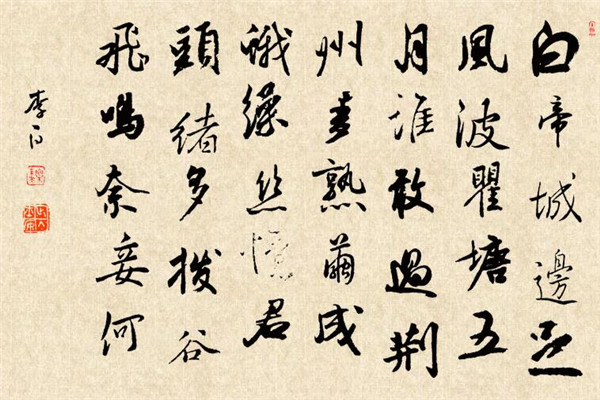 白帝城邊足
風波瞿塘五
月誰敢過荆
州麦熟繭成
蛾繰丝憶君
頭緒多拨谷
飛鳴奈妾何
李白